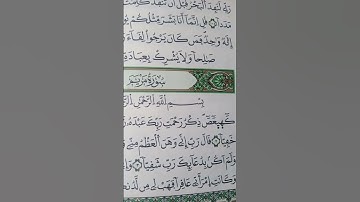 رَبِّى لَنَفِدَ ٱلْبَحْرُ قَبْلَ أَن تَنفَدَ كَلِمَٰتُ
مَدَدًا قُلْ إِنَّمَآ أَنَا۠ بَشَرٌ مِّثْلُكُمْ يُو
إِلَٰهٌ وَٰحِدٌ فَمَن كَانَ يَرْجُوا۟ لِقَآءَ
صَٰلِحًا وَلَا يُشْرِكْ بِعِبَادَةِ
سُورَةُ مَرْيَمَ
بِسْمِ ٱللَّهِ ٱلرَّحْمَٰنِ
كٓهيعٓصٓ ذِكْرُ رَحْمَتِ رَبِّكَ عَبْدَهُۥ
خَفِيًّا قَالَ رَبِّ إِنِّى وَهَنَ ٱلْعَظْمُ مِنِّى
وَلَمْ أَكُنۢ بِدُعَآئِكَ رَبِّ شَقِيًّا
وَكَانَتِ ٱمْرَأَتِى عَاقِرًا فَهَبْ لِى مِن لَّدُن